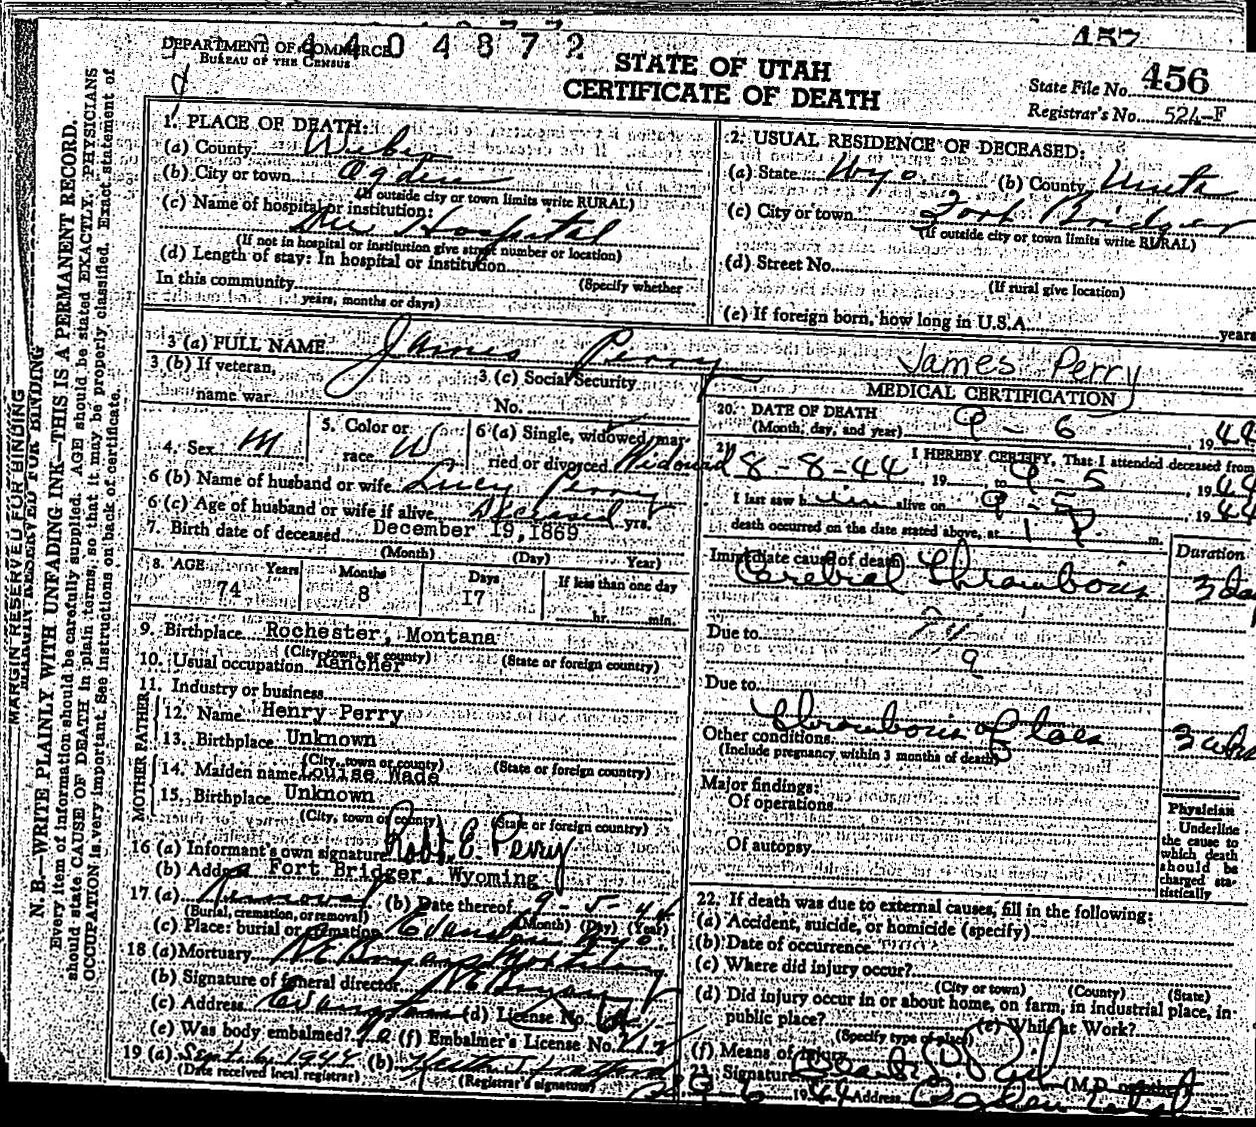 4404872
457
DEPARTMENT OF COMMERCE
BUREAU OF THE CENSUS
STATE OF UTAH
CERTIFICATE OF DEATH
State File No. 456
Registrar's No. 524-F
MARGIN RESERVED FOR BINDING
N. B.—WRITE PLAINLY WITH UNFADING INK—THIS IS A PERMANENT RECORD.
Every item of information should be carefully supplied. AGE should be stated EXACTLY. PHYSICIANS
should state CAUSE OF DEATH in plain terms, so that it may be properly classified. Exact statement of
OCCUPATION is very important. See instructions on back of certificate.
1. PLACE OF DEATH:
(a) County Weber
(b) City or town Ogden
(If outside city or town limits write RURAL)
(c) Name of hospital or institution:
Dee Hospital
(If not in hospital or institution give street number or location)
(d) Length of stay: In hospital or institution
(Specify whether
In this community
years, months or days)
2. USUAL RESIDENCE OF DECEASED:
(a) State Wyo. (b) County Uinta
(c) City or town Fort Bridger
(If outside city or town limits write RURAL)
(d) Street No.
(If rural give location)
(e) If foreign born, how long in U.S.A. years
3 (a) FULL NAME James Perry
James Perry
3 (b) If veteran,
name war
3 (c) Social Security
No.
4. Sex M
5. Color or
race W
6 (a) Single, widowed, mar-
ried or divorced Widowed
6 (b) Name of husband or wife Lucy Perry
6 (c) Age of husband or wife if alive Deceased yrs.
7. Birth date of deceased December 19, 1869
(Month) (Day) Year)
8. AGE Years Months Days If less than one day
74 8 17 hr. min.
9. Birthplace Rochester, Montana
(City, town, or county) (State or foreign country)
10. Usual occupation Rancher
11. Industry or business
FATHER
12. Name Henry Perry
13. Birthplace Unknown
(City, town or county) (State or foreign country)
MOTHER
14. Maiden name Louise Wade
15. Birthplace Unknown
(City, town or county) (State or foreign country)
16 (a) Informant's own signature Robt. E. Perry
(b) Address Fort Bridger, Wyoming
17 (a) Removal (b) Date thereof 9-5-44
(Burial, cremation, or removal) (Month) (Day) (Year)
(c) Place: burial or cremation Evanston, Wyo.
18 (a) Mortuary
(b) Signature of funeral director
(c) Address Evanston (d) License No.
(e) Was body embalmed? (f) Embalmer's License No. 212
19 (a) Sept. 6, 1944 (b)
(Date received local registrar) (Registrar's signature)
MEDICAL CERTIFICATION
20. DATE OF DEATH
(Month, day, and year) 9-6 , 1944
21. I HEREBY CERTIFY, That I attended deceased from
8-8-44 19 to 9-5 , 1944
I last saw him alive on 9-5 , 1944
death occurred on the date stated above, at 1 P m.
Duration
Immediate cause of death
Cerebral Thrombosis 3 da
Due to
Due to
Thrombosis of
Other conditions 3 wks
(Include pregnancy within 3 months of death)
Major findings:
Of operations
Of autopsy
Physician
Underline
the cause to
which death
should be
charged sta-
tistically
22. If death was due to external causes, fill in the following:
(a) Accident, suicide, or homicide (specify)
(b) Date of occurrence
(c) Where did injury occur?
(City or town) (County) (State)
(d) Did injury occur in or about home, on farm, in industrial place, in
public place?
(Specify type of place) (e) While at Work?
(f) Means of injury
23. Signature (M.D. or other)
19 Address Ogden Utah